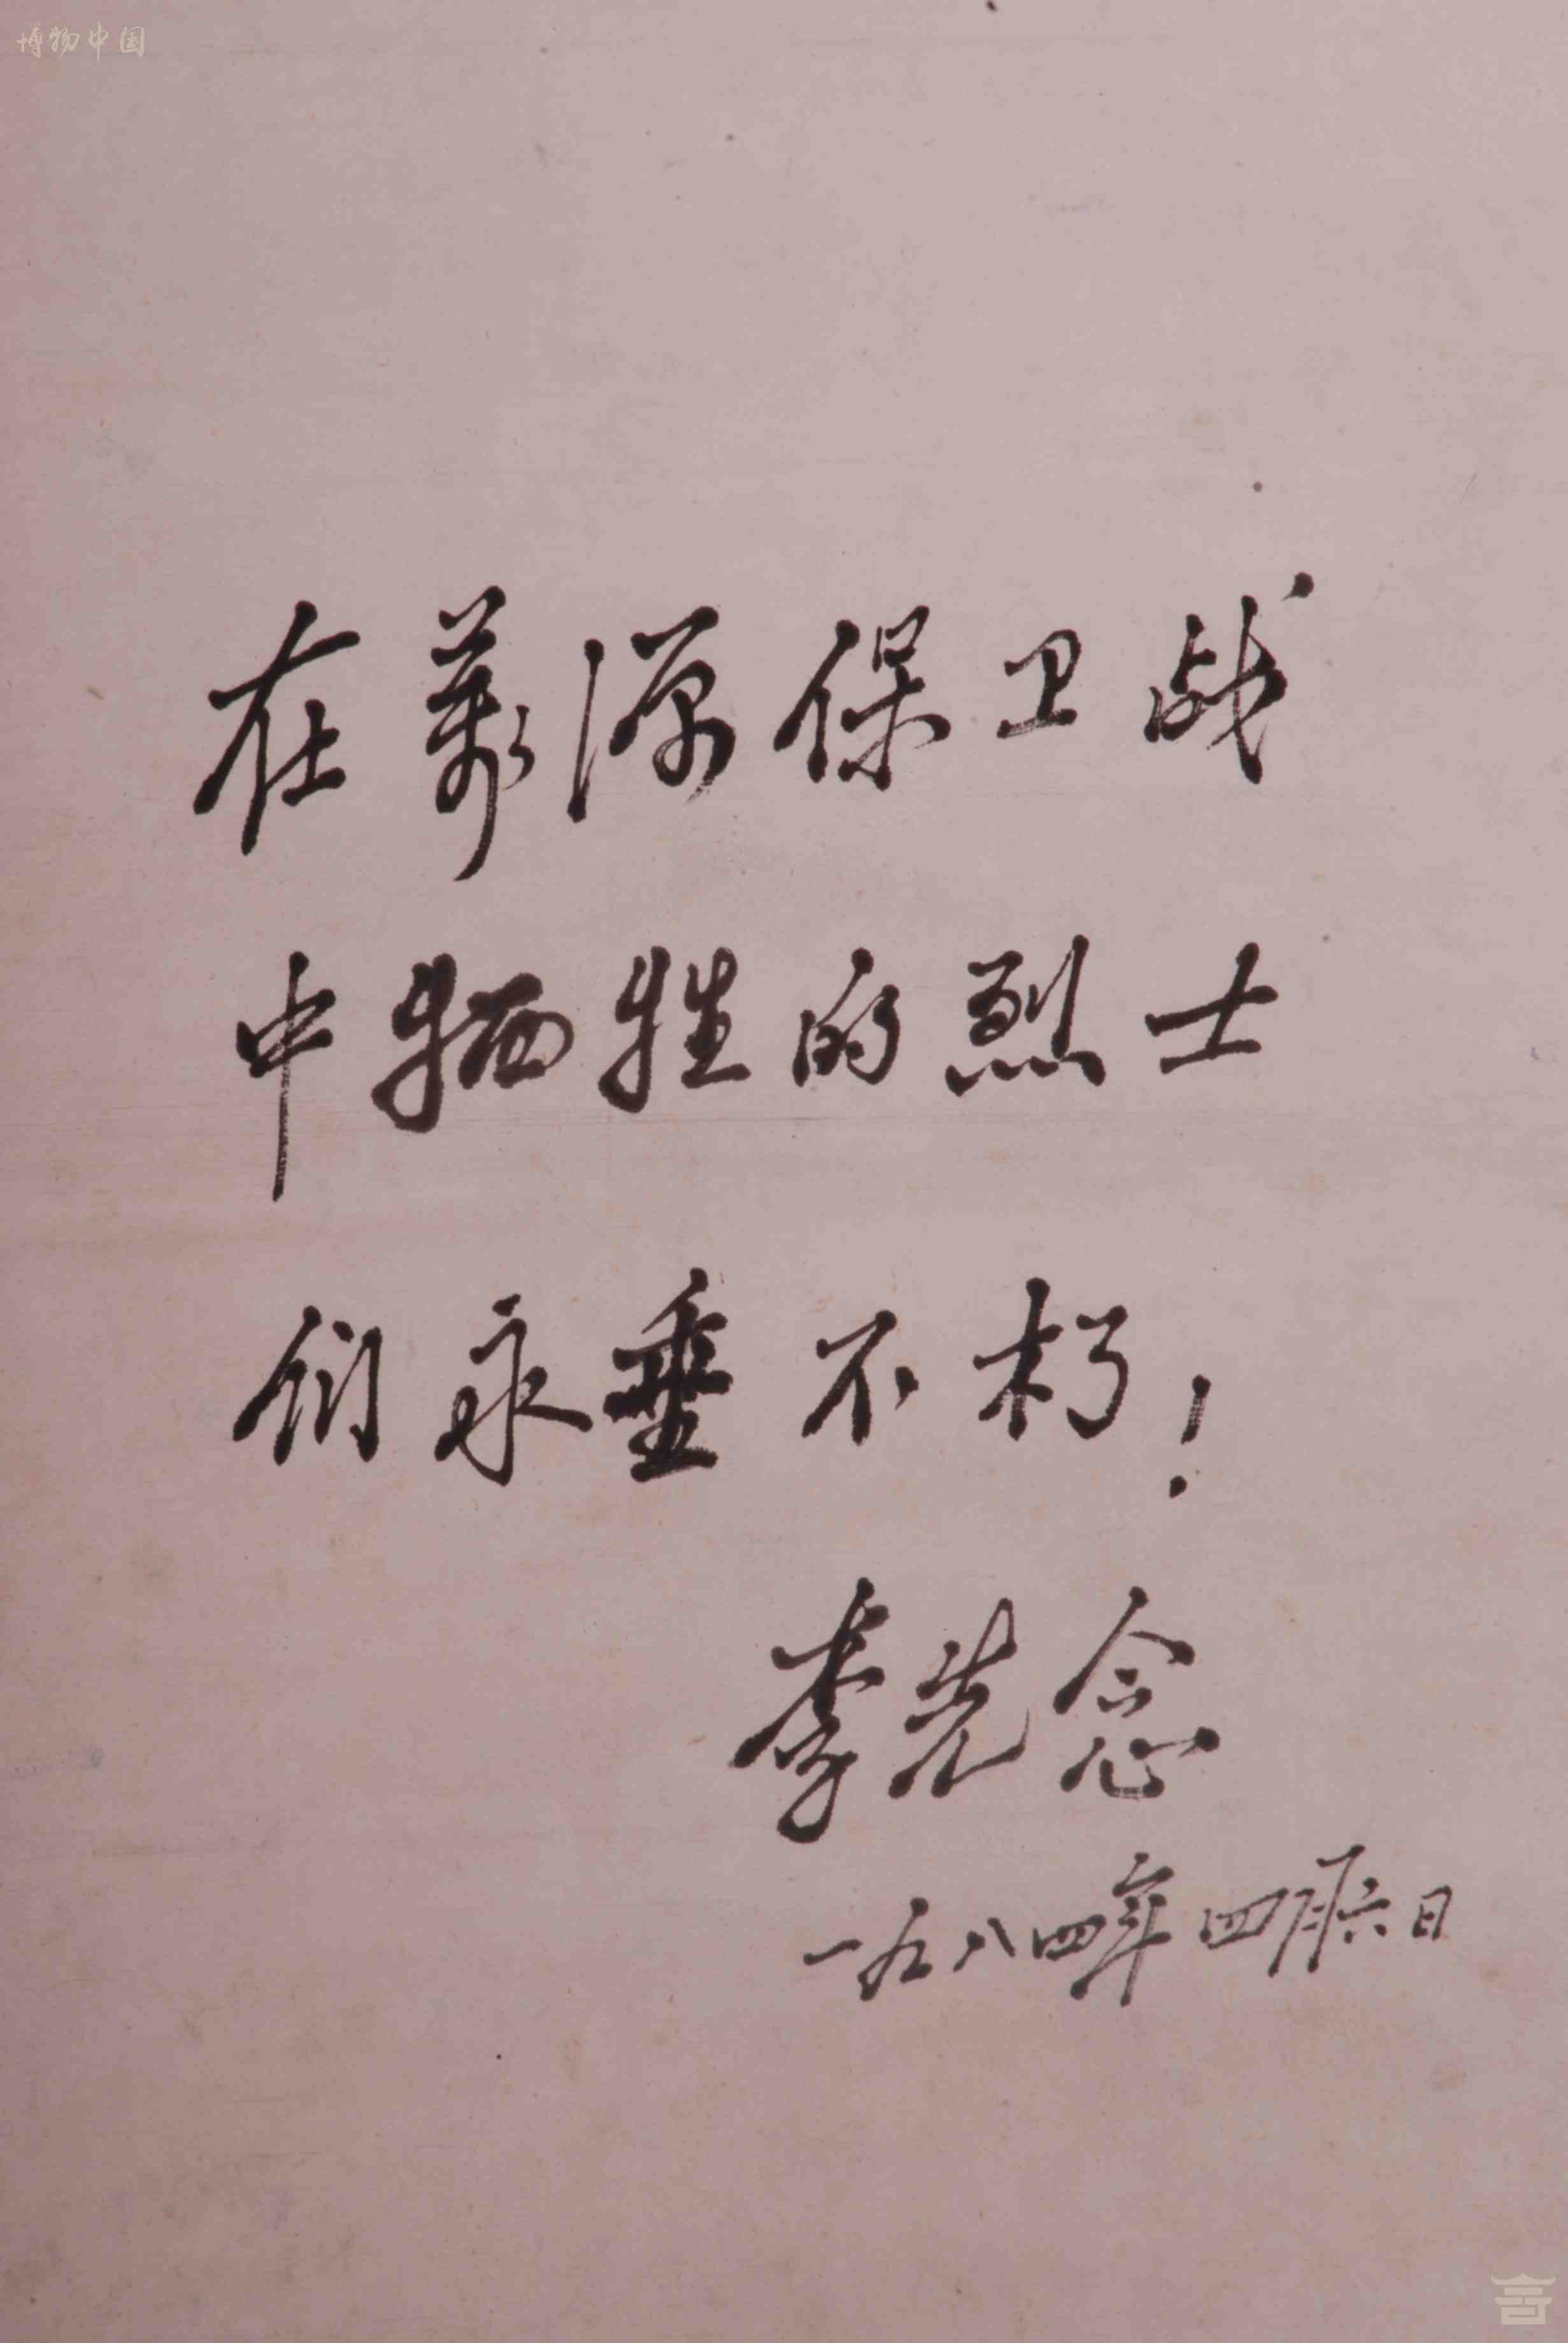 博物中国
在萬源保卫战
中牺牲的烈士
们永垂不朽！
李先念
一九八四年四月六日